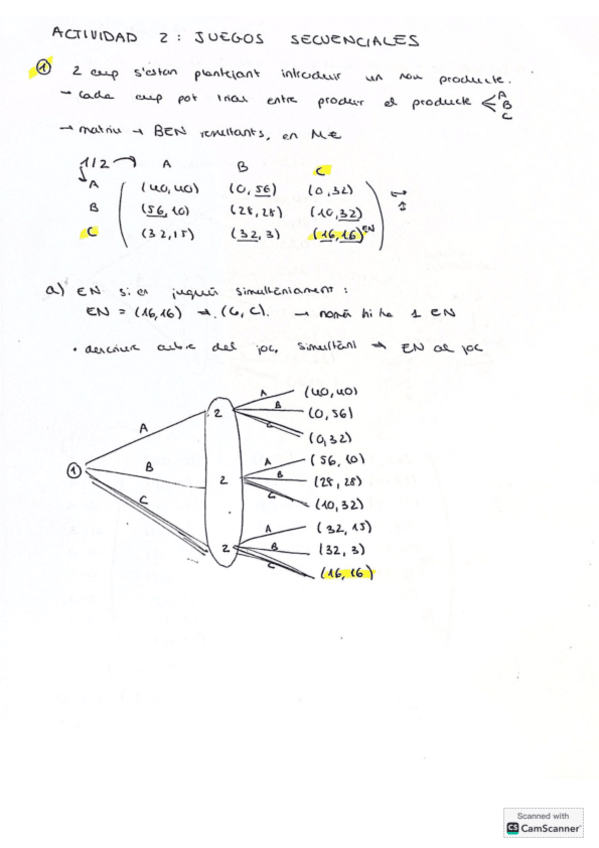 ACTIVIDAD 2: JUEGOS SECUENCIALES
① 2 emp s'estan plantejant introduir un nou producte.
→ cada emp pot triar entre produir el producte < A B C
→ matriu → BEN resultants, en M€
1/2 A B C
A (40,40) (0,56) (0,32)
B (56,10) (28,28) (10,32)
C (32,15) (32,3) (16,16) EN
a) EN si es jugués simultàniament:
EN = (16,16) → (C, C). → només hi ha 1 EN
• descriure arbre del joc, simultàni → EN del joc
A (40,40)
2 B (0,56)
C (0,32)
A
A (56,10)
① B 2 B (28,28)
C (10,32)
C
A (32,15)
2 B (32,3)
C (16,16)
Scanned with
CS CamScanner